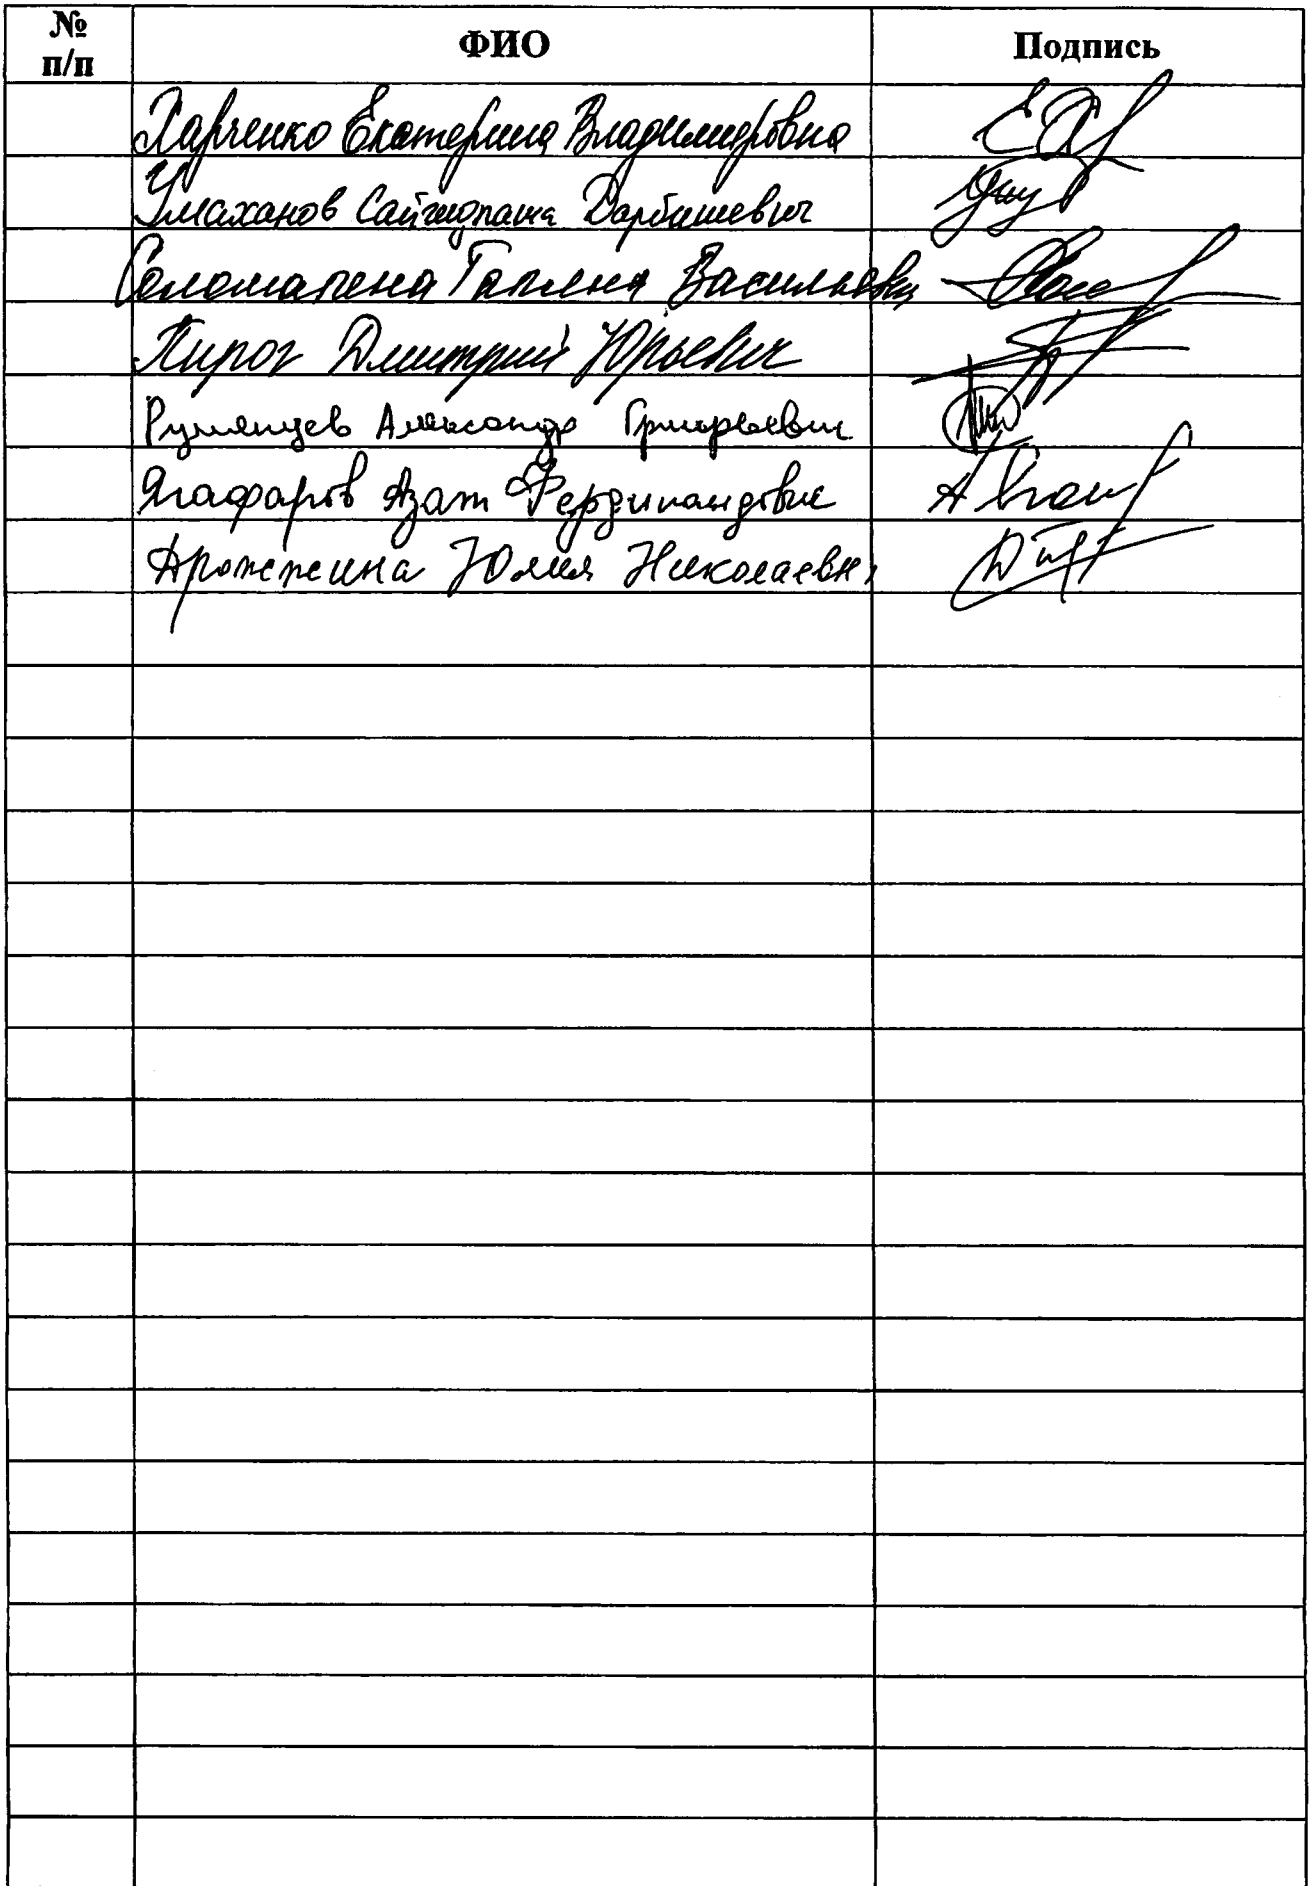 № п/п ФИО Подпись
Харченко Екатерина Владимировна
Умаханов Сайгидпаша Дарбишевич
Татьяна Васильевна
Пирог Дмитрий Юрьевич
Румянцев Александр Григорьевич
Ягафаров Азат Фердинандович
Дрожжина Юлия Николаевна